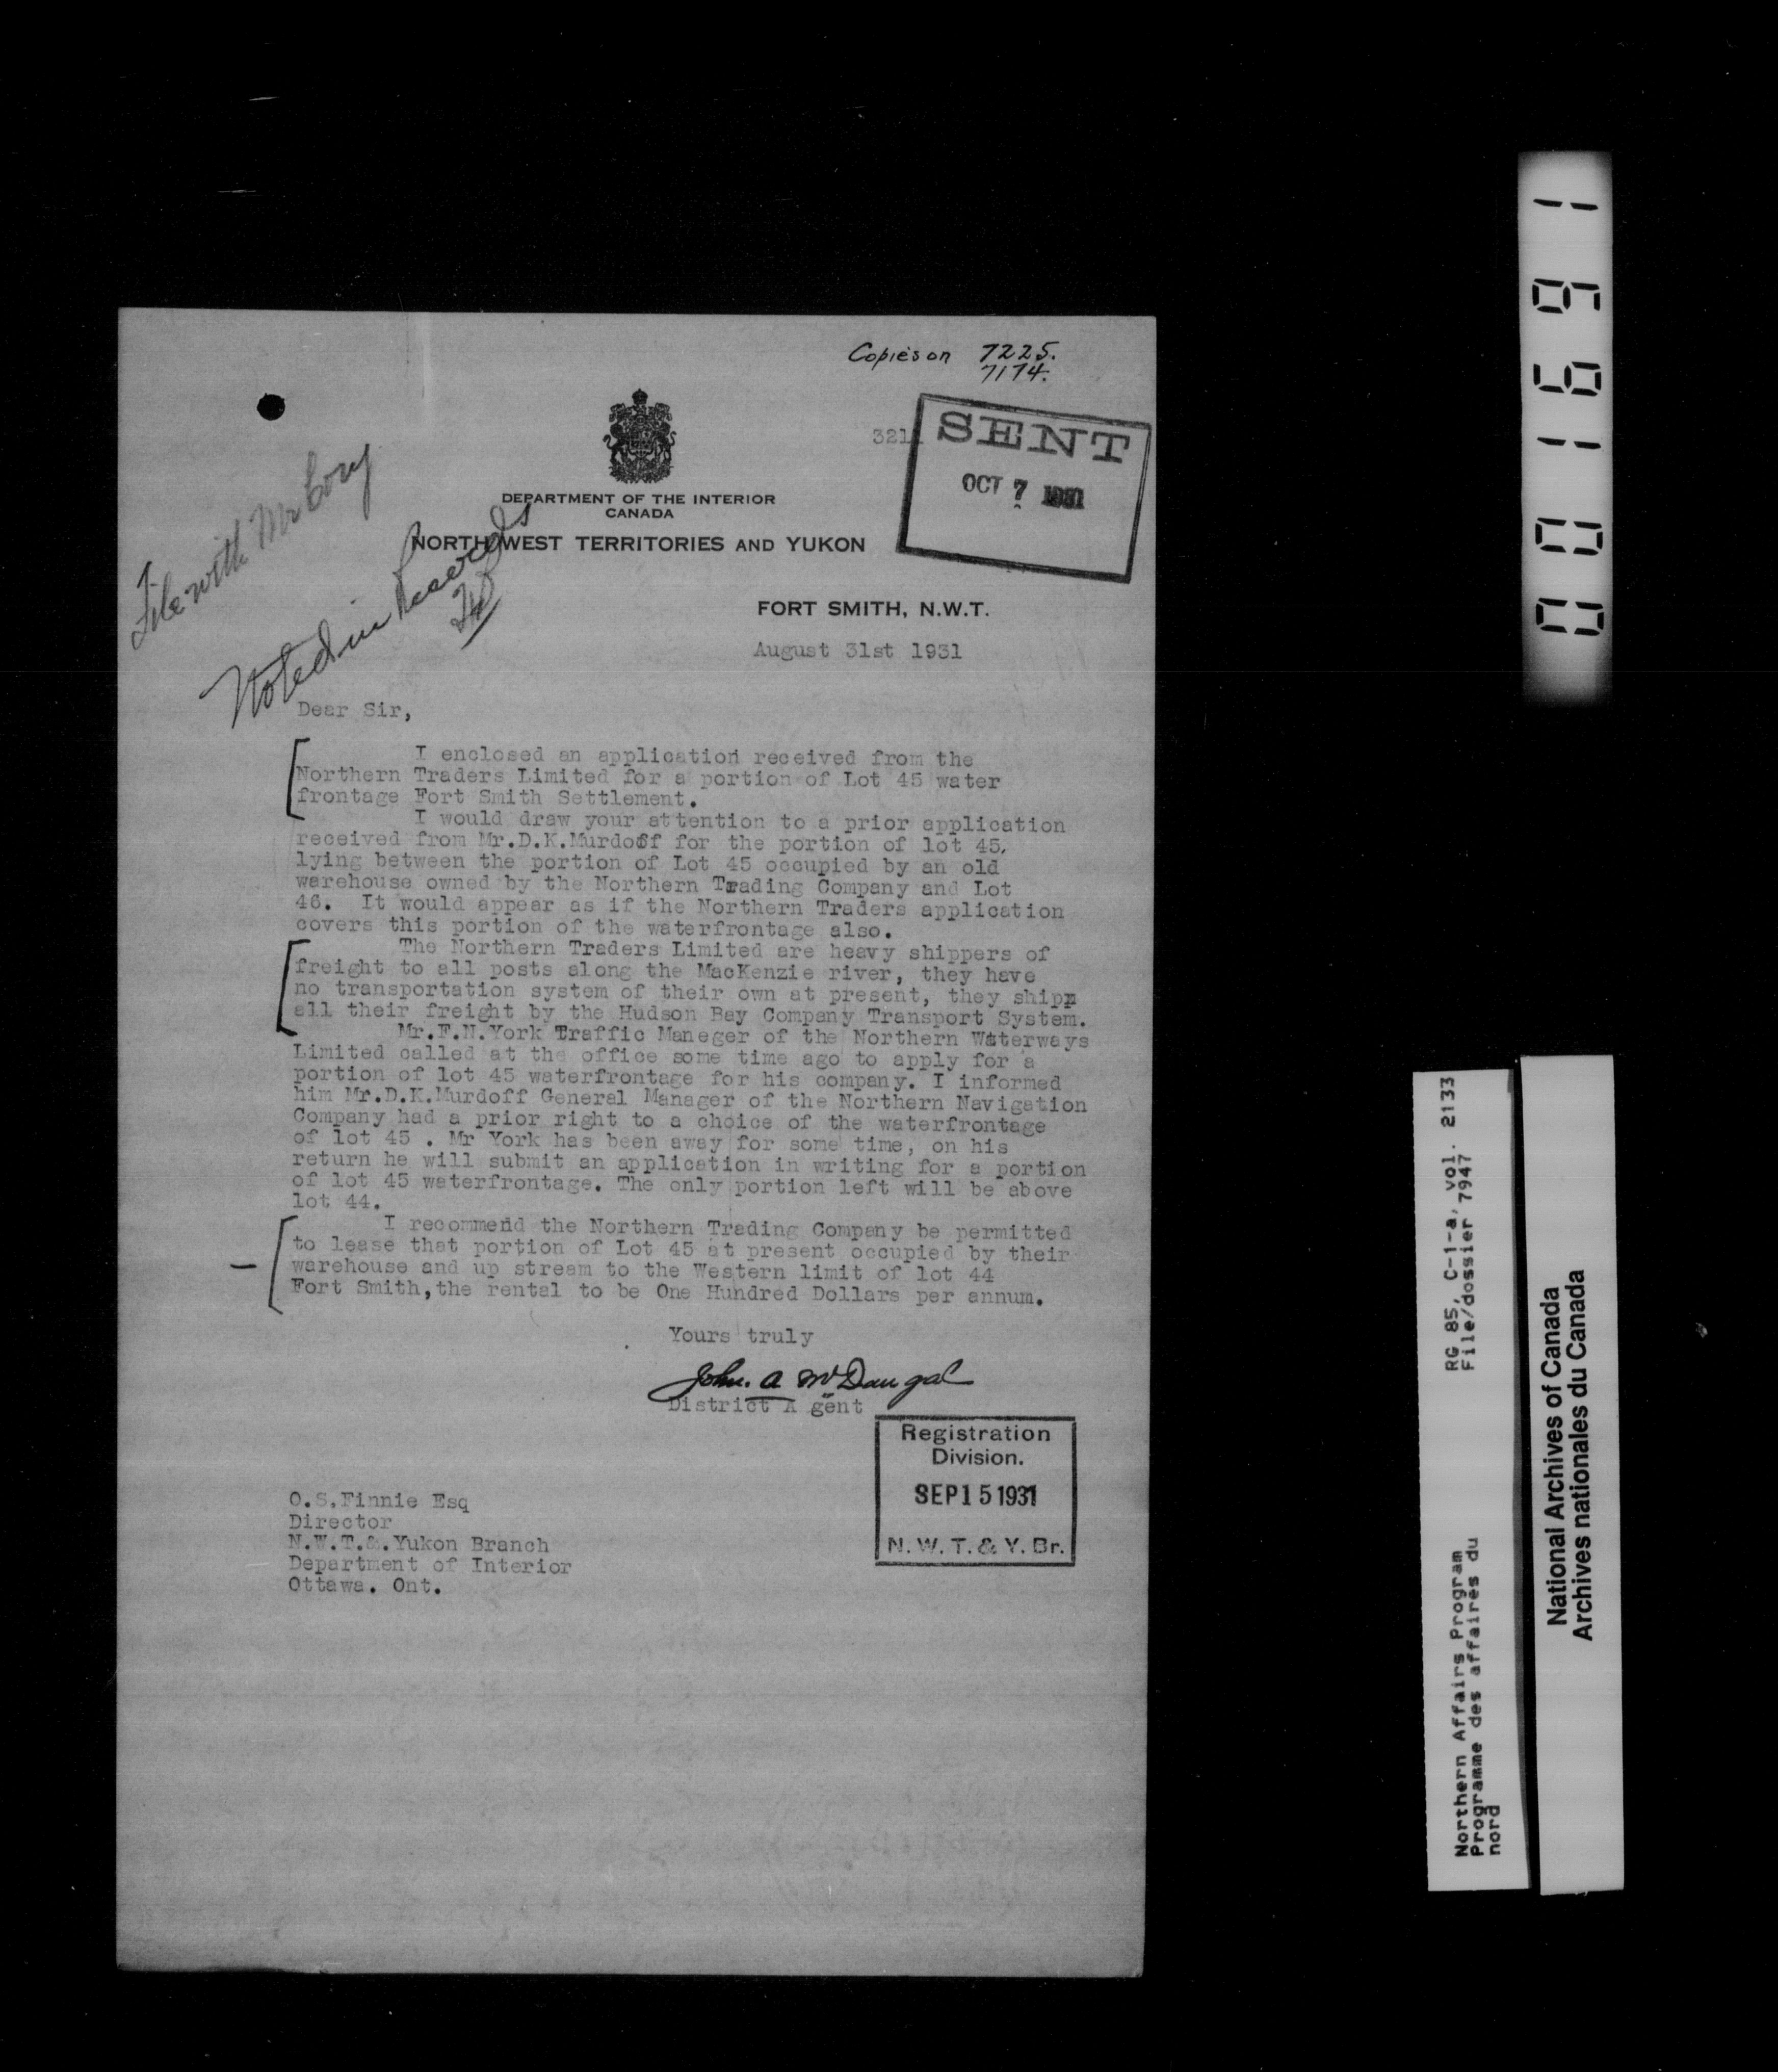 Copies on 7225.
7174.
321
SENT
OCT 7 1931
DEPARTMENT OF THE INTERIOR
CANADA
NORTH WEST TERRITORIES AND YUKON
File with Mr Cory
Noted in Records
FORT SMITH, N.W.T.
August 31st 1931
Dear Sir,
I enclosed an application received from the
Northern Traders Limited for a portion of Lot 45 water
frontage Fort Smith Settlement.
I would draw your attention to a prior application
received from Mr.D.K.Murdoff for the portion of lot 45,
lying between the portion of Lot 45 occupied by an old
warehouse owned by the Northern Trading Company and Lot
46. It would appear as if the Northern Traders application
covers this portion of the waterfrontage also.
The Northern Traders Limited are heavy shippers of
freight to all posts along the MacKenzie river, they have
no transportation system of their own at present, they shipp
all their freight by the Hudson Bay Company Transport System.
Mr.F.N.York Traffic Maneger of the Northern Waterways
Limited called at the office some time ago to apply for a
portion of lot 45 waterfrontage for his company. I informed
him Mr.D.K.Murdoff General Manager of the Northern Navigation
Company had a prior right to a choice of the waterfrontage
of lot 45 . Mr York has been away for some time, on his
return he will submit an application in writing for a portion
of lot 45 waterfrontage. The only portion left will be above
lot 44.
I recommend the Northern Trading Company be permitted
to lease that portion of Lot 45 at present occupied by their
warehouse and up stream to the Western limit of lot 44
Fort Smith,the rental to be One Hundred Dollars per annum.
Yours truly
John. A McDougal
District A gent
Registration
Division.
SEP 15 1931
N. W. T. & Y. Br.
O.S.Finnie Esq
Director
N.W.T.&.Yukon Branch
Department of Interior
Ottawa. Ont.
001691
RG 85, C-1-a, vol. 2133
File/dossier 7947
Northern Affairs Program
Programme des affaires du
nord
National Archives of Canada
Archives nationales du Canada